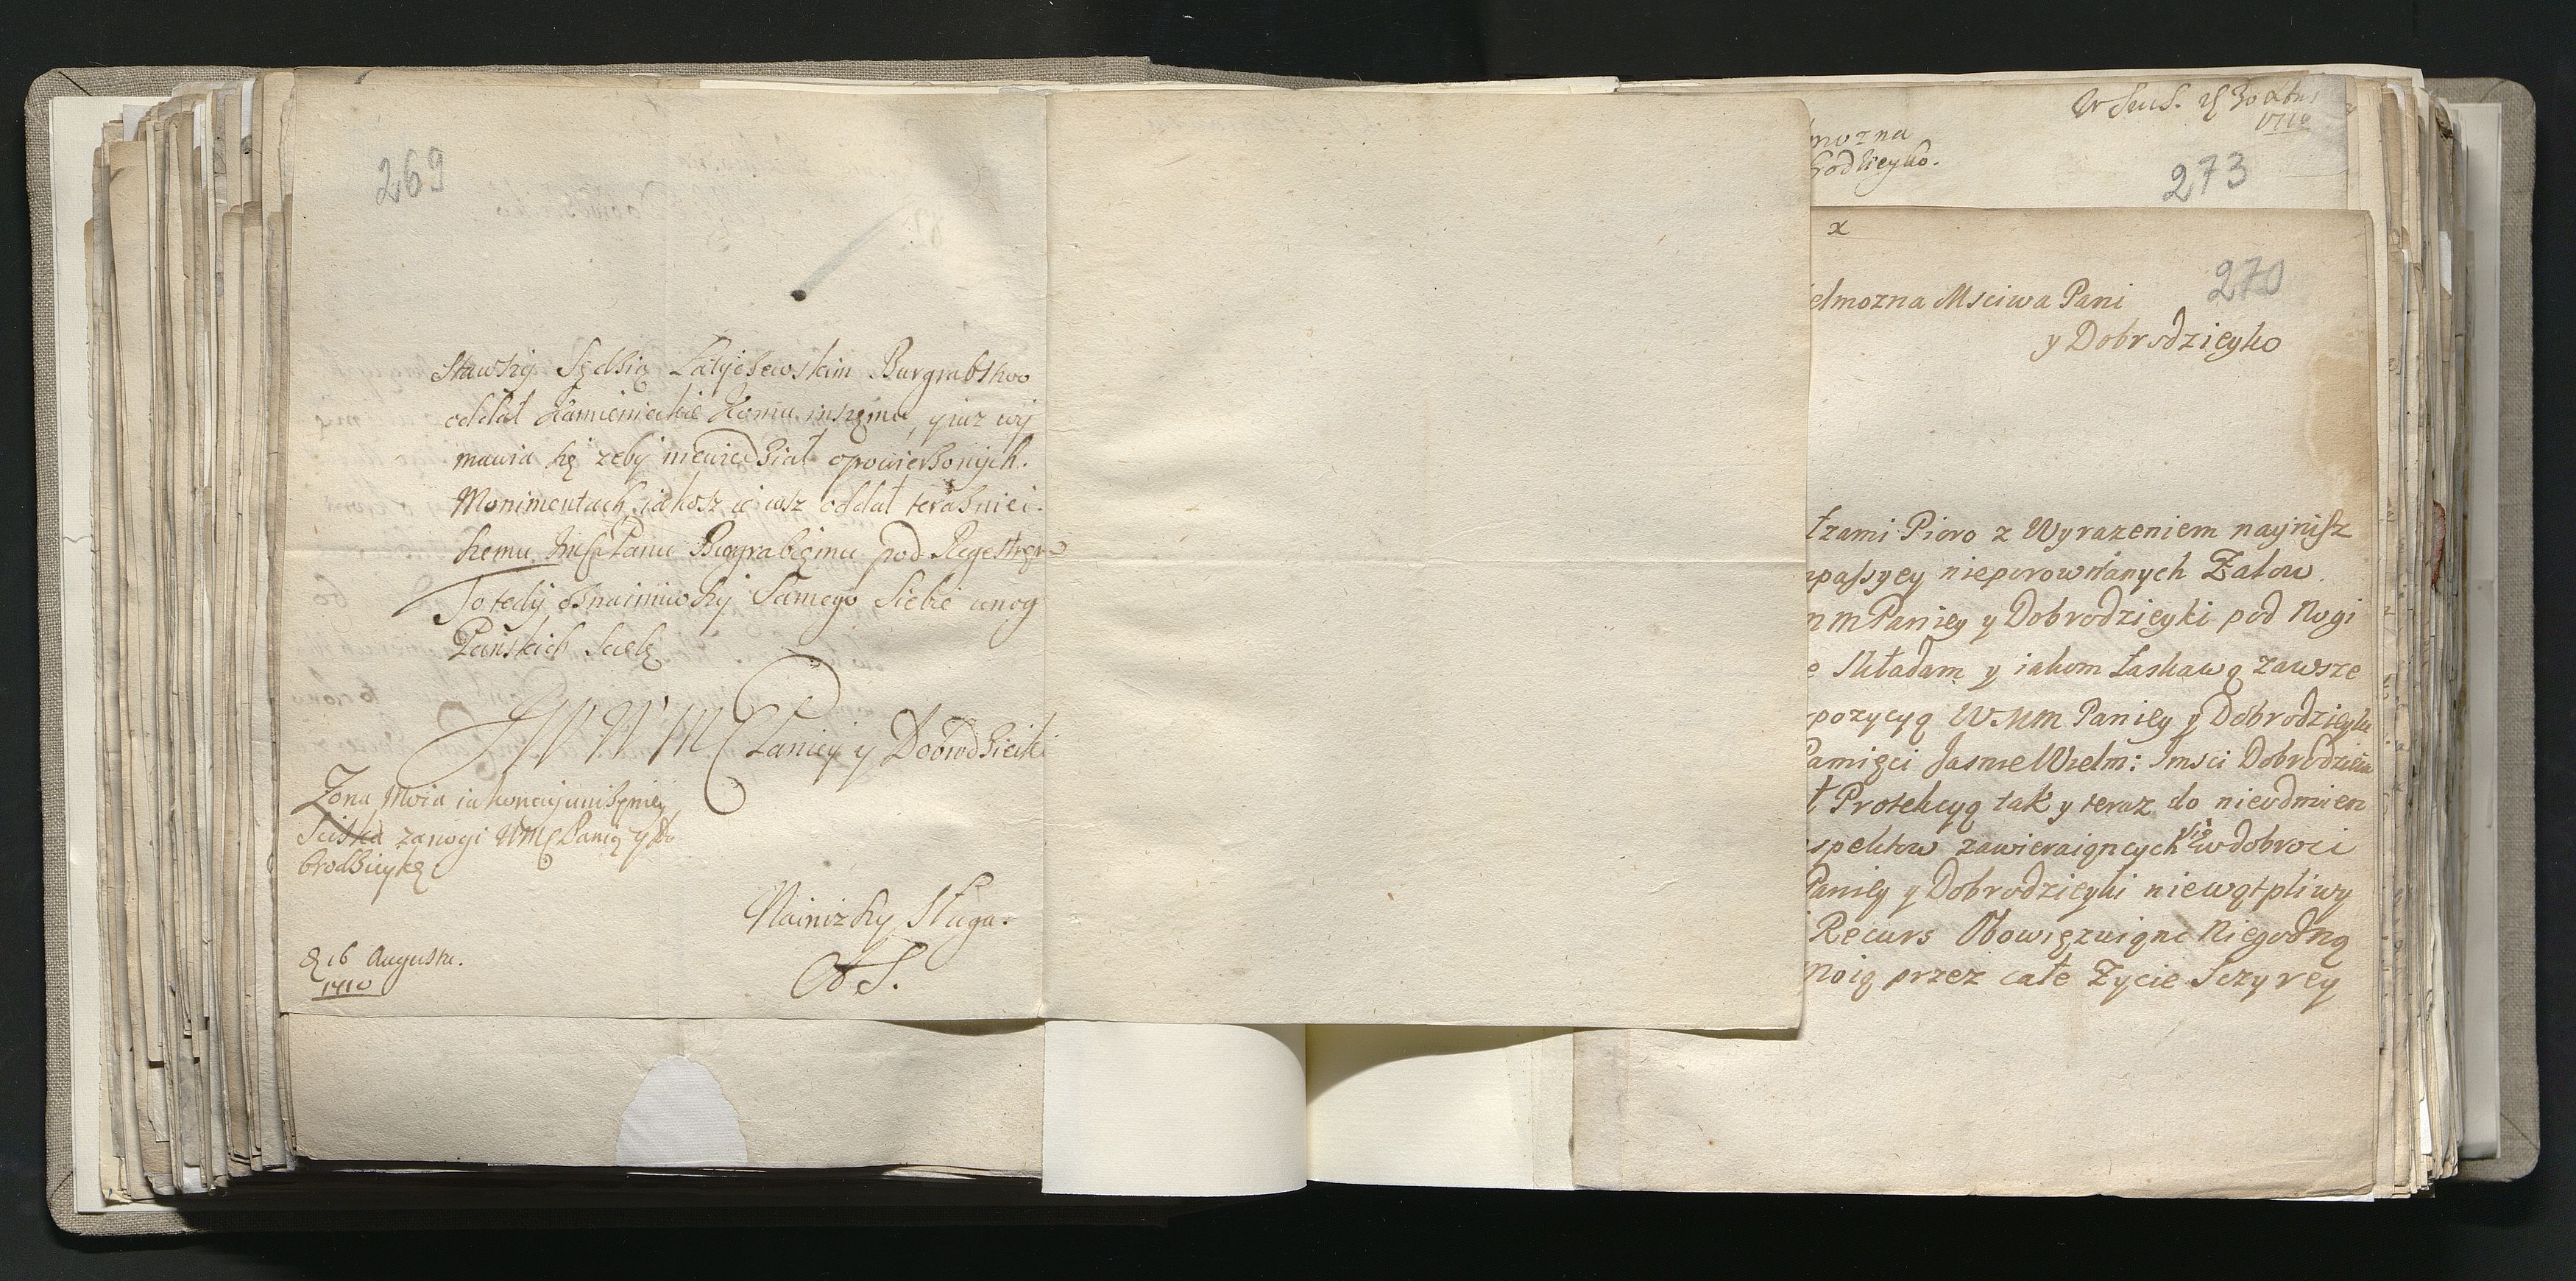 269
Stawszy Sędzią Latyczewskim Burgrabstwo
oddał Kamienieckie Komu inszemu, y iuz wy
mawia się zeby niewiedział opowierzonych.
Monimentach, iakosz ie iusz oddał teraźniei-
szemu Panu Burgrabięmu pod Regestrem
To tedy oznaimiwszy Samego Siebie unog
Pańskich Scielę
WMM Paniey y Dobrodzieiki
Zona Moia iako nayunizeniey
Sciska zanogi WMM Panią y Do
brodzieykę
Nainizszy Sługa.
A S.
16 Augusta.
1710
30
1710
mozna
odzieyko.
273
x
270
elmozna Msciwa Pani
y Dobrodzieyko
łzami Pioro z Wyrazeniem naynisz
passyey nieporownanych Zalow.
m Paniey y Dobrodzieyki pod Nogi
e Składam y iakom łaskawą zawsze
pozycyą WMM Paniey y Dobrodzieyki
Pamięci Jasnie Wielm: Imsci Dobrodzieia
t Protekcyą tak y teraz do nieodmien
spektow zawieraiących się w dobroci
Paniey y Dobrodzieyki niewątpliwy
Recurs Obowięzuiąnc Niegodną
moią przez całe Zycie Sczyrey